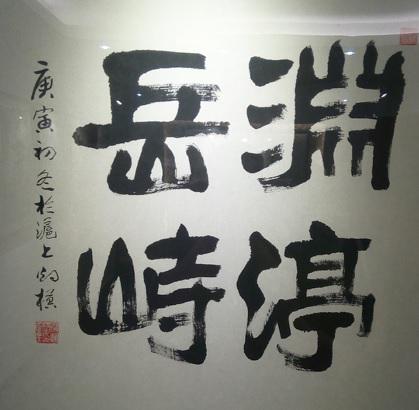 淵渟
岳峙
庚寅初冬於滬上